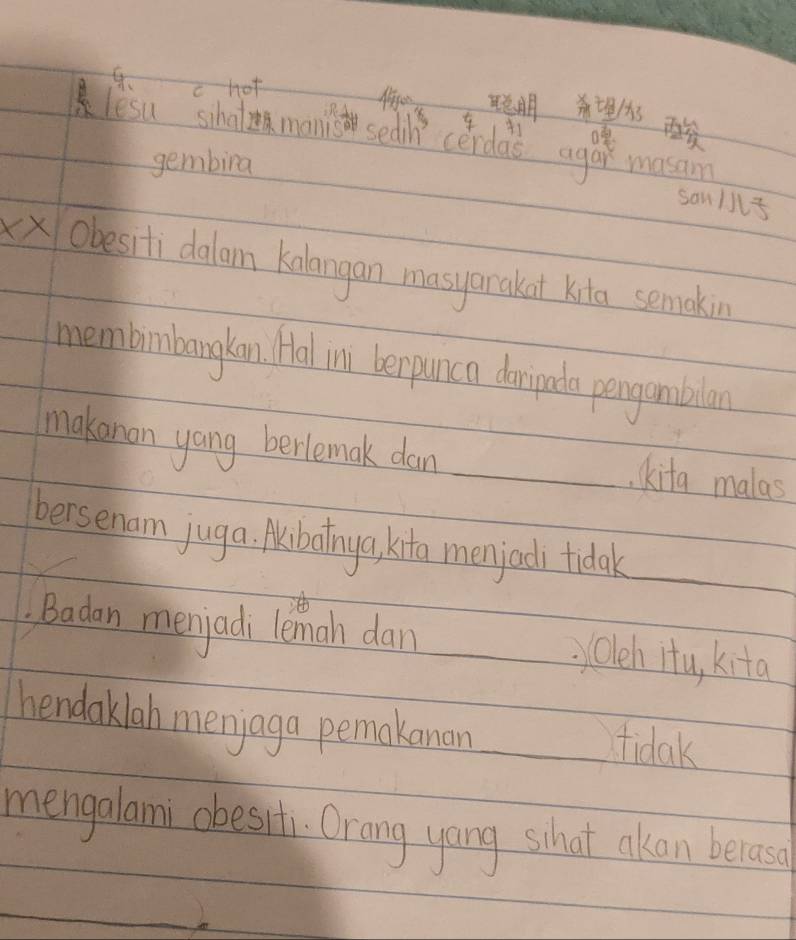 c hot 聪明 希望/为 酸
lesu sihat manis sedih cerdas agar masam
gembira sour
XX Obesiti dalam kalangan masyarakat kita semakin
membimbangkan. Hal ini berpunca daripada pengambilan
makanan yang berlemak dan ________. kita malas
bersenam juga. Akibatnya, kita menjadi tidak ________
油
. Badan menjadi lemah dan ________. Oleh itu, kita
hendaklah menjaga pemakanan ________ tidak
mengalami obesiti. Orang yang sihat akan berasa
________.